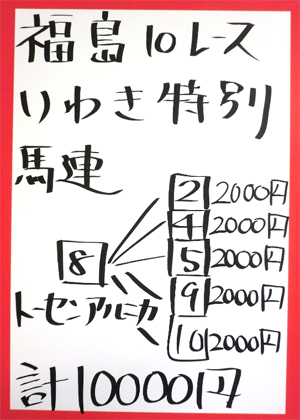 福島10レース
いわき特別
馬連
2 2000円
4 2000円
8 5 2000円
9 2000円
トーセンアルニカ
10 2000円
計10000円